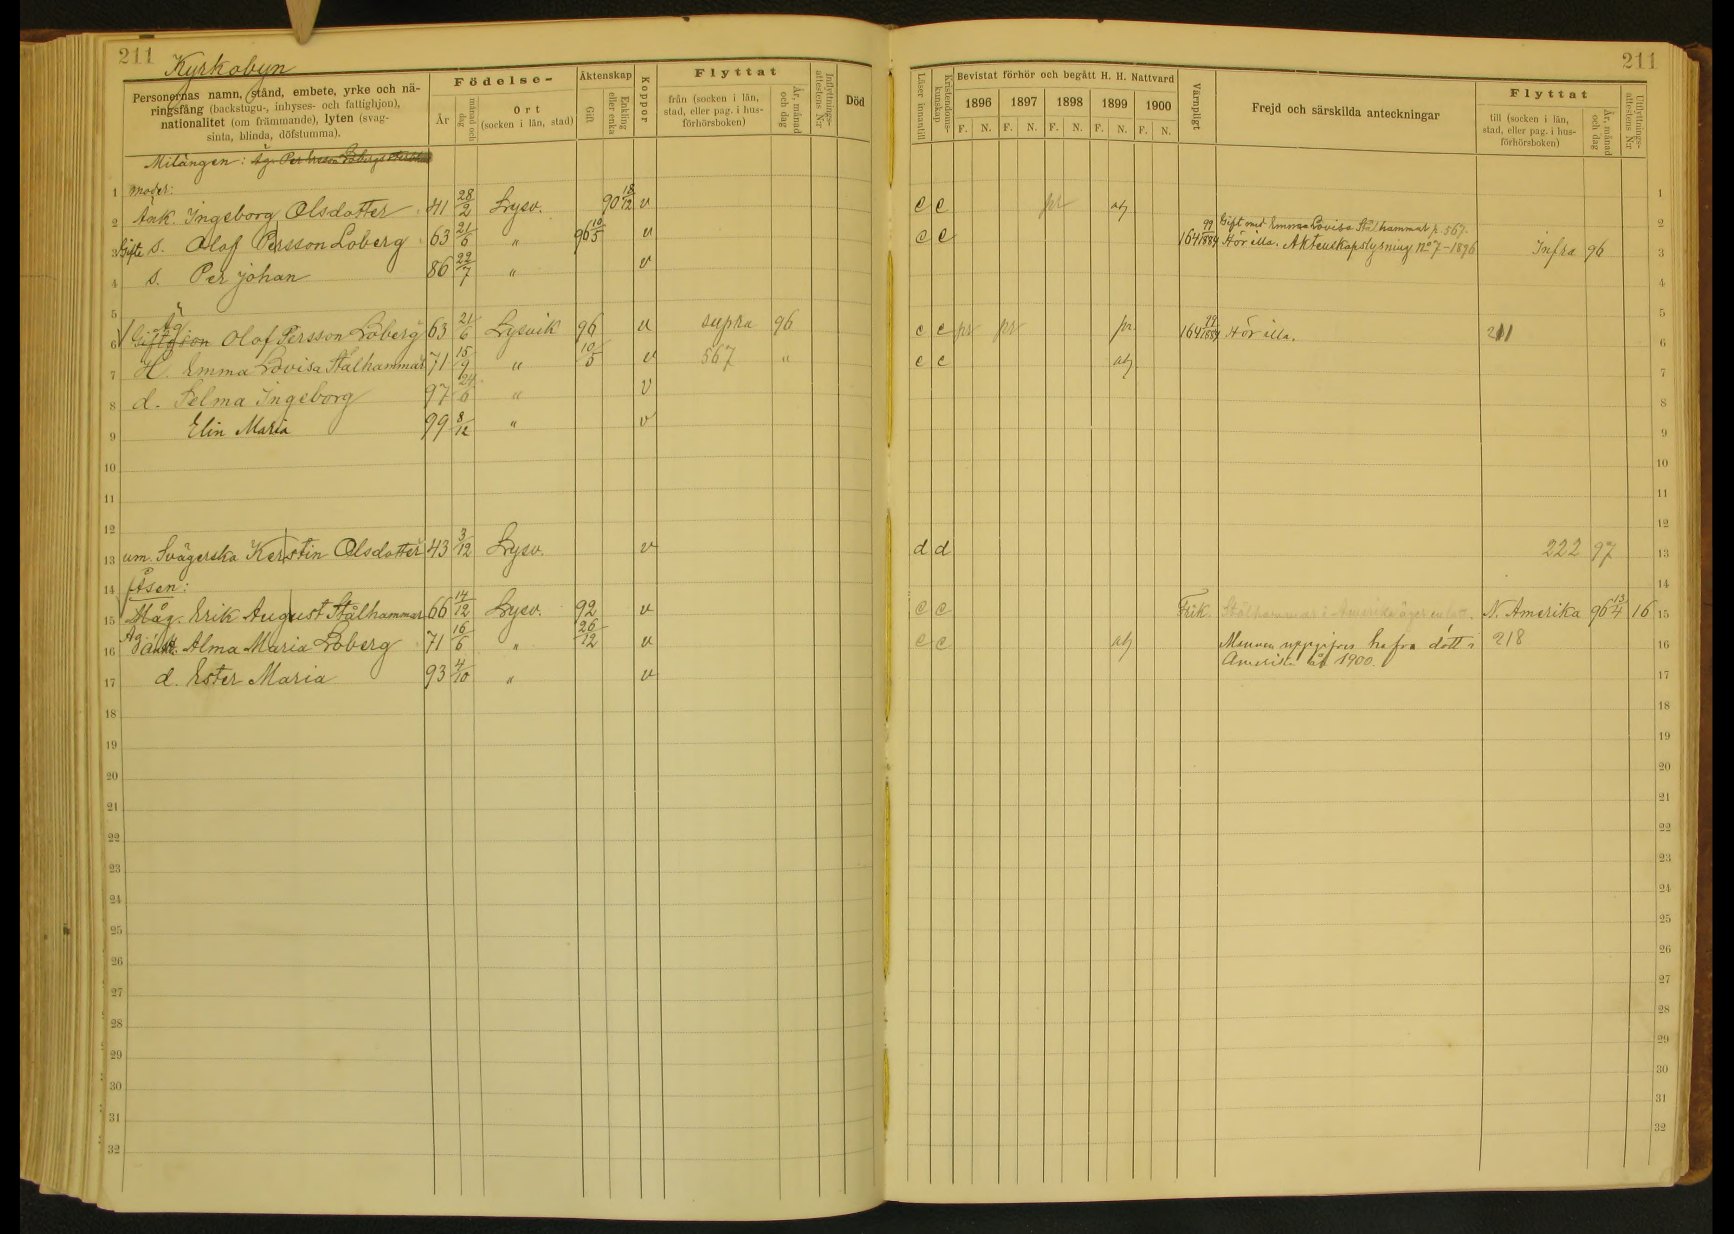 211
Kyrkobyn
Personernas namn, stånd, embete, yrke och nä-
ringsfång (backstugu-, inhyses- och fattighjon),
nationalitet (om främmande), lyten (svag-
sinta, blinda, döfstumma).
Födelse-
År
månad och dag
Ort
(socken i län, stad)
Äktenskap
Gift
Enkling eller enka
Koppor
Flyttat
från (socken i län,
stad, eller pag. i hus-
förhörsboken)
År, månad och dag
Inflyttnings-attestens N:r
Död
211
Läser innantill
Kristendoms-kunskap
Bevistat förhör och begått H. H. Nattvard
1896 1897 1898 1899 1900
F. N. F. N. F. N. F. N. F. N.
Värnpligt
Frejd och särskilda anteckningar
Flyttat
till (socken i län,
stad, eller pag. i hus-
förhörsboken)
År, månad och dag
Utflyttnings-attestens N:r
Milängen:
1 moder: 1
2 Änk. Ingeborg Olsdotter 41 28/2 Lysv. 90 18/12 v c c pr 2
3 Gifte s. Olof Persson Löberg 63 21/6 " 96 10/5 v c c 164 99/1884 Gift med Emma Lovisa Stålhammar p. 567.
Hör illa. Äktenskapslysning No 7-1896 Infra 96 3
4 s. Per Johan 86 22/7 " v 4
5 5
6 Olof Persson Löberg 63 21/6 Lysvik 96 v supra 96 c c pr pr pr 164 99/1884 Hör illa. 211 6
7 H. Emma Lovisa Stålhammar 71 15/9 " 10/5 v 567 " c c 7
8 d. Selma Ingeborg 97 24/6 " v 8
9 Elin Maria 99 8/12 " v 9
10 10
11 11
12 12
13 Svägerska Kerstin Olsdotter 43 3/12 Lysv. v d d 222 97 13
14 Åsen: 14
15 Måg. Erik August Stålhammar 66 14/12 Lysv. 92 v c c Frik. Stålhammar i Amerika N. Amerika 96 13/4 16 15
16 Alma Maria Löberg 71 16/6 " 26/12 v c c Mannen uppgifves hafva dött i 218 16
Amerika år 1900.
17 d. Ester Maria 93 4/10 " v 17
18 18
19 19
20 20
21 21
22 22
23 23
24 24
25 25
26 26
27 27
28 28
29 29
30 30
31 31
32 32